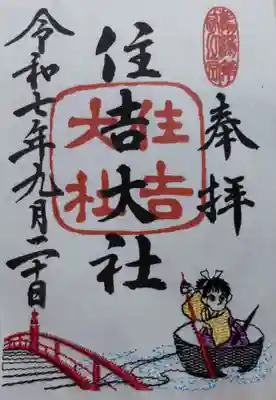 奉拝
住吉大社
住吉
大社
令和七年九月二十日